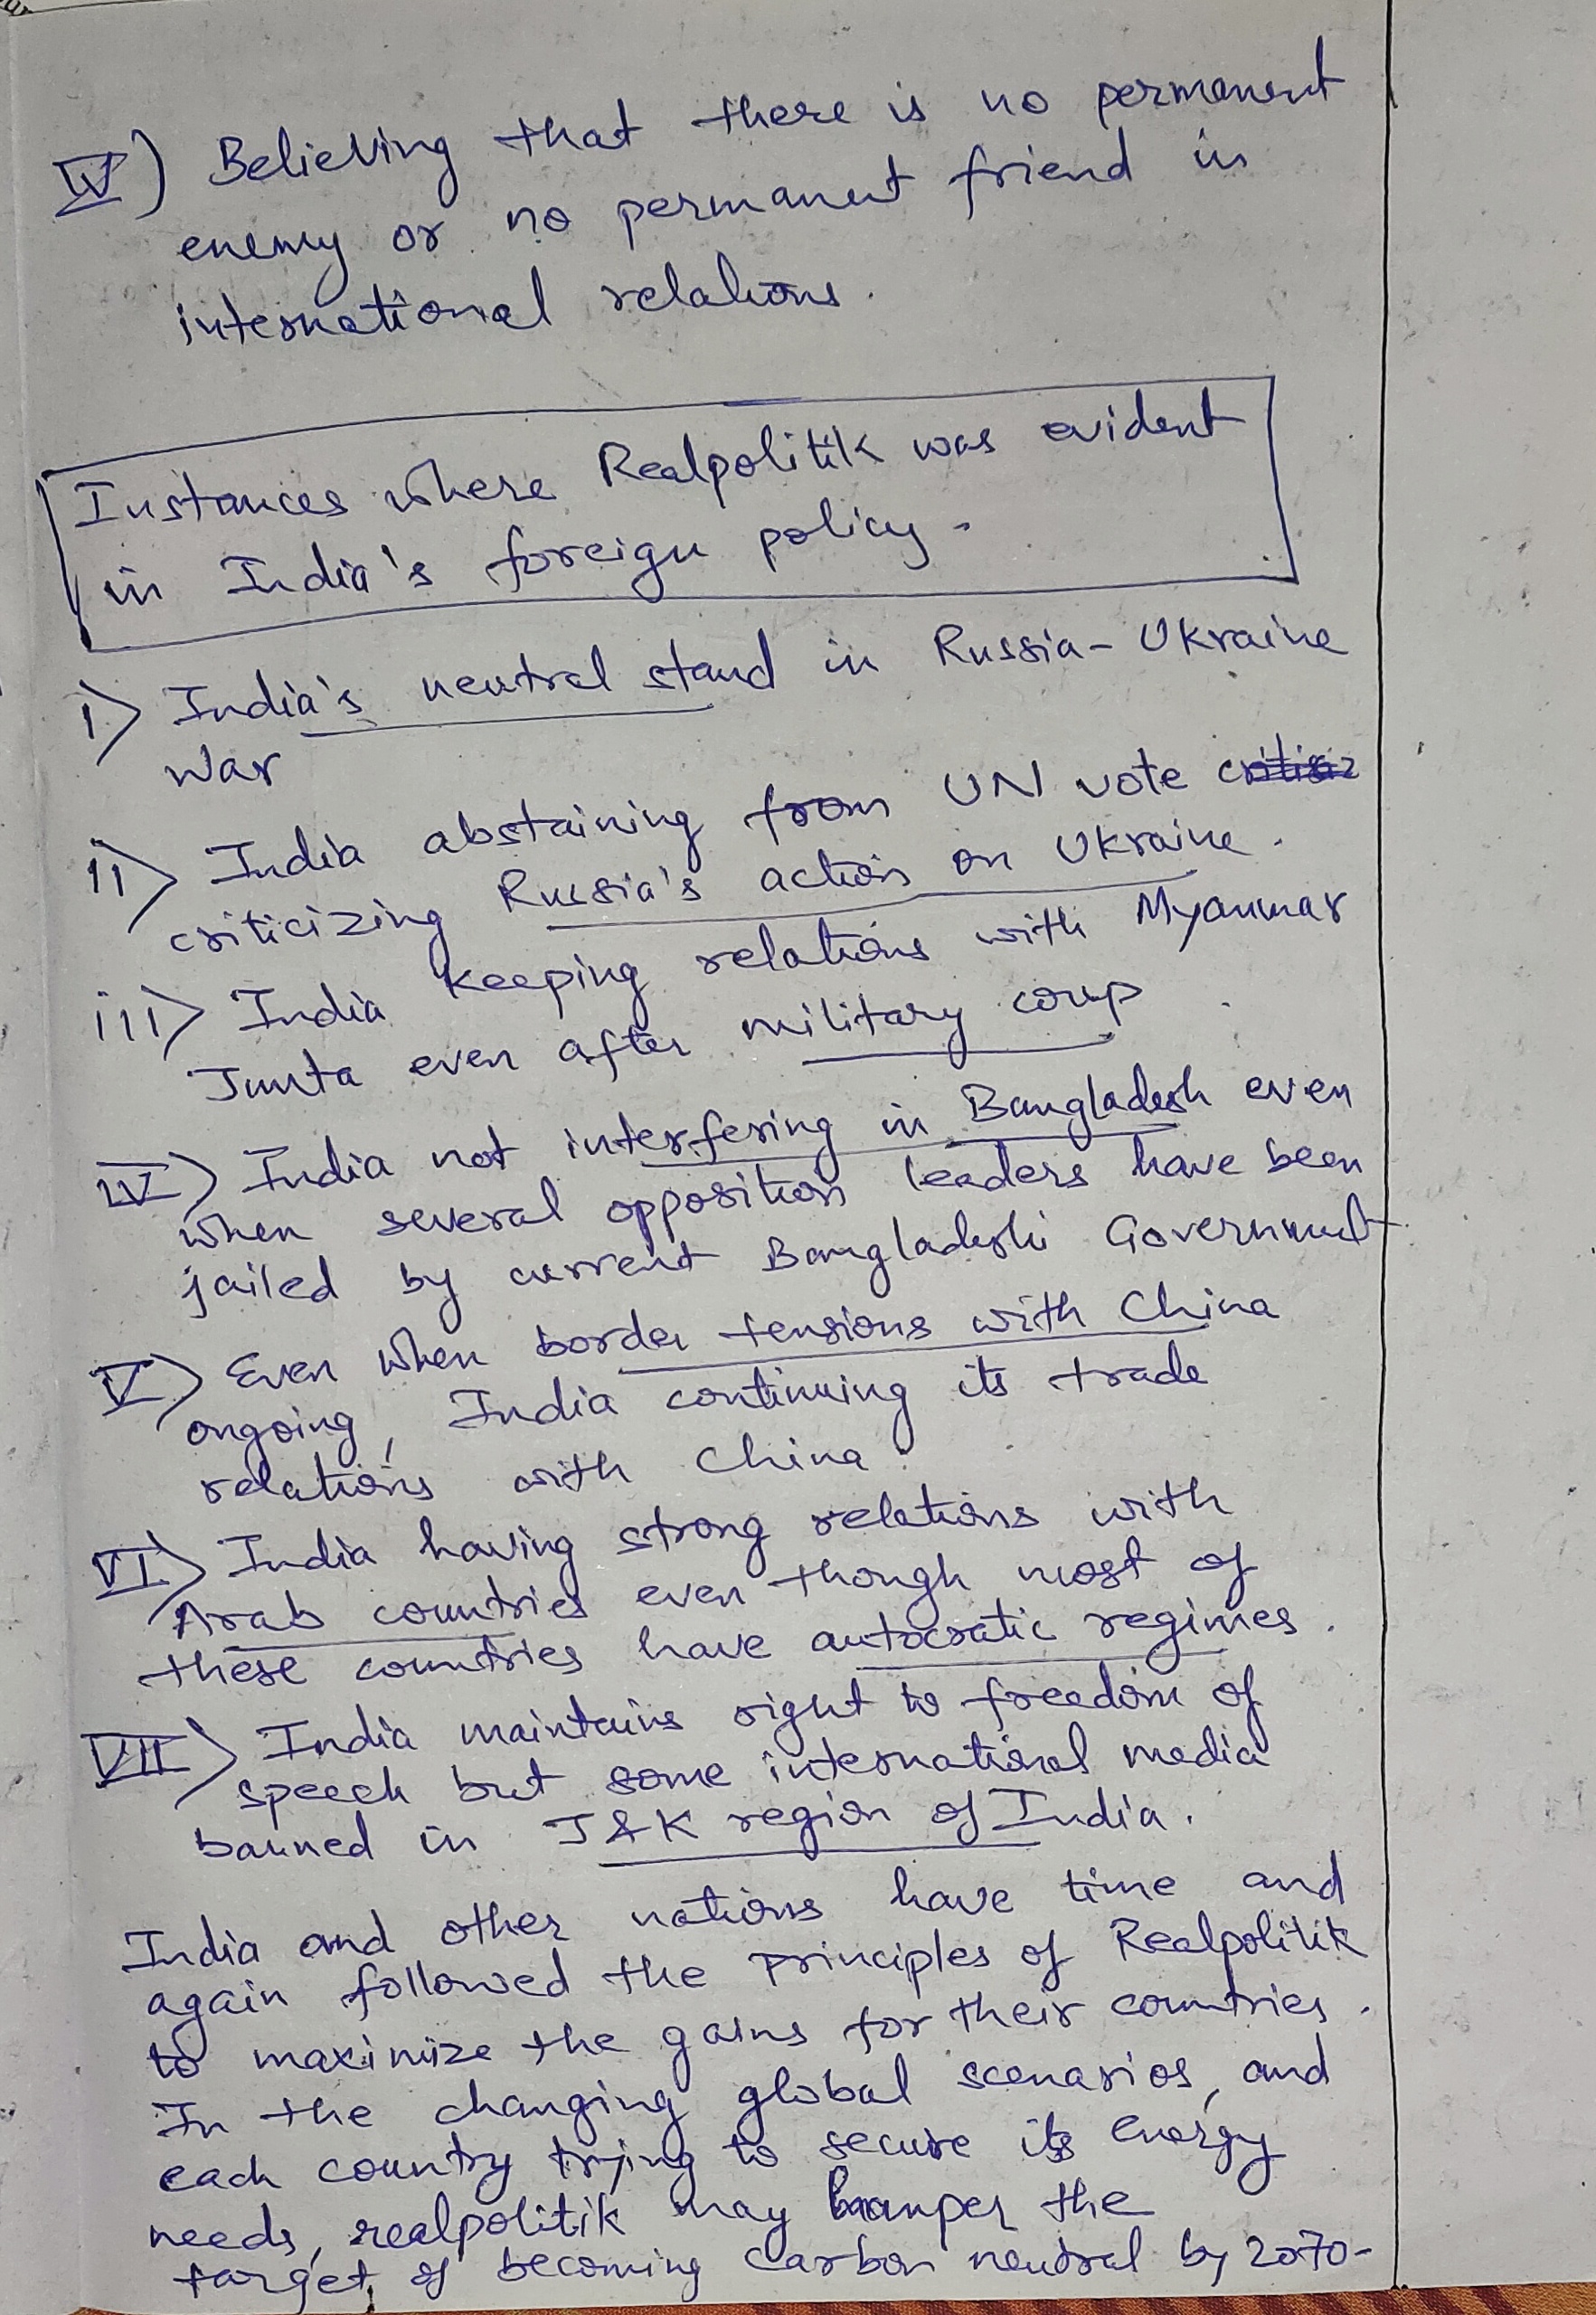 IV) Believing that there is no permanent
enemy or no permanent friend in
international relations.
Instances where Realpolitik was evident
in India's foreign policy.
i) India's neutral stand in Russia-Ukraine
war
ii) India abstaining from UN vote
criticizing Russia's action on Ukraine.
iii) India keeping relations with Myanmar
Junta even after military coup
IV) India not interfering in Bangladesh even
when several opposition leaders have been
jailed by current Bangladeshi Government
V) Even when border tensions with China
ongoing, India continuing its trade
relations with China.
VI) India having strong relations with
Arab countries even though most of
these countries have autocratic regimes.
VII) India maintains right to freedom of
speech but some international media
banned in J&K region of India.
India and other nations have time and
again followed the principles of Realpolitik
to maximize the gains for their countries.
In the changing global scenarios, and
each country trying to secure its energy
needs, realpolitik may hamper the
target of becoming carbon neutral by 2070-